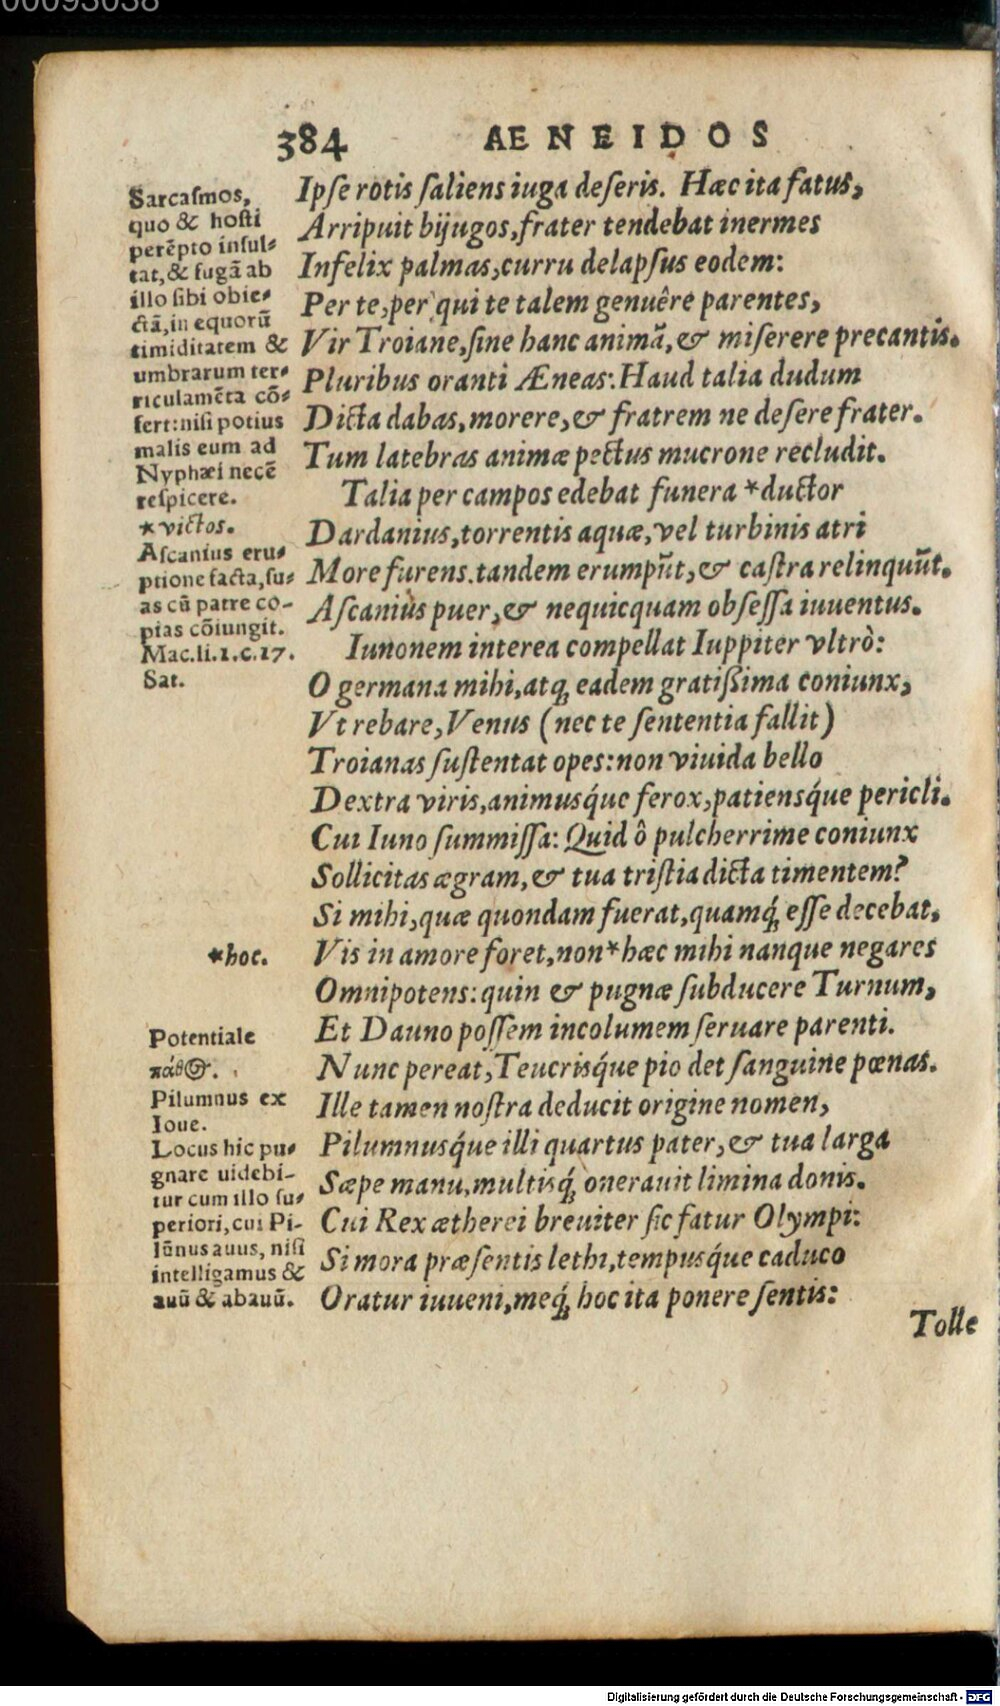 00093038
384 AENEIDOS
Sarcaſmos,
quo & hoſti
perēpto inſul-
tat, & fugā ab
illo ſibi obie-
ctā, in equorū
timiditatem &
umbrarum ter-
riculamēta cō-
fert: niſi potius
malis eum ad
Nyphæi necē
reſpicere.
*victos.
Aſcanius eru-
ptione facta, ſu-
as cū patre co-
pias cōiungit.
Mac.li.1.c.17.
Sat.
*hoc.
Potentiale
πάθος.
Pilumnus ex
Ioue.
Locus hic pu-
gnare uidebi-
tur cum illo ſu-
periori, cui Pi-
lūnus auus, niſi
intelligamus &
auū & abauū.
Ipſe rotis ſaliens iuga deſeris. Hæc ita fatus,
Arripuit bijugos, frater tendebat inermes
Infelix palmas, curru delapſus eodem:
Per te, per qui te talem genuêre parentes,
Vir Troiane, ſine hanc animā, & miſerere precantis.
Pluribus oranti Æneas: Haud talia dudum
Dicta dabas, morere, & fratrem ne deſere frater.
Tum latebras animæ pectus mucrone recludit.
Talia per campos edebat funera *ductor
Dardanius, torrentis aquæ, vel turbinis atri
More furens. tandem erumpūt, & caſtra relinquūt.
Aſcanius puer, & nequicquam obſeſſa iuuentus.
Iunonem interea compellat Iuppiter vltrò:
O germana mihi, atq; eadem gratißima coniunx,
Vt rebare, Venus (nec te ſententia fallit)
Troianas ſuſtentat opes: non viuida bello
Dextra viris, animusq́ue ferox, patiensq́ue pericli.
Cui Iuno ſummiſſa: Quid ô pulcherrime coniunx
Sollicitas ægram, & tua triſtia dicta timentem?
Si mihi, quæ quondam fuerat, quamq́; eſſe decebat,
Vis in amore foret, non *hæc mihi nanque negares
Omnipotens: quin & pugnæ ſubducere Turnum,
Et Dauno poſſem incolumem ſeruare parenti.
Nunc pereat, Teucrisq́ue pio det ſanguine pœnas.
Ille tamen noſtra deducit origine nomen,
Pilumnusq́ue illi quartus pater, & tua larga
Sæpe manu, multisq́; onerauit limina donis.
Cui Rex ætherei breuiter ſic fatur Olympi:
Si mora præſentis lethi, tempusq́ue caduco
Oratur iuueni, meq́; hoc ita ponere ſentis:
Tolle
Digitalisierung gefördert durch die Deutsche Forschungsgemeinschaft - DFG